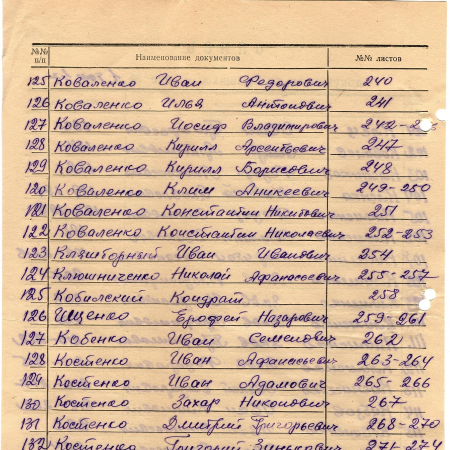 №№ п/п Наименование документов №№ листов
125 Коваленко Иван Федорович 240
126 Коваленко Илья Антонович 241
127 Коваленко Иосиф Владимирович 242-
128 Коваленко Кирилл Арсентьевич 247
129 Коваленко Кирилл Борисович 248
120 Коваленко Клим Аникеевич 249-250
121 Коваленко Константин Никитович 251
122 Коваленко Константин Николаевич 252-253
123 Иван Иванович 254
124 Клюшниченко Николай Афанасьевич 255-257
125 Кобилский Кондрат 258
126 Ищенко Ерофей Назарович 259-261
127 Кобенко Иван Семенович 262
128 Костенко Иван Афанасьевич 263-264
129 Костенко Иван Адамович 265-266
130 Костенко Захар Никонович 267
131 Костенко Дмитрий Григорьевич 268-270
132 Костенко Григорий Зинькович 271-274